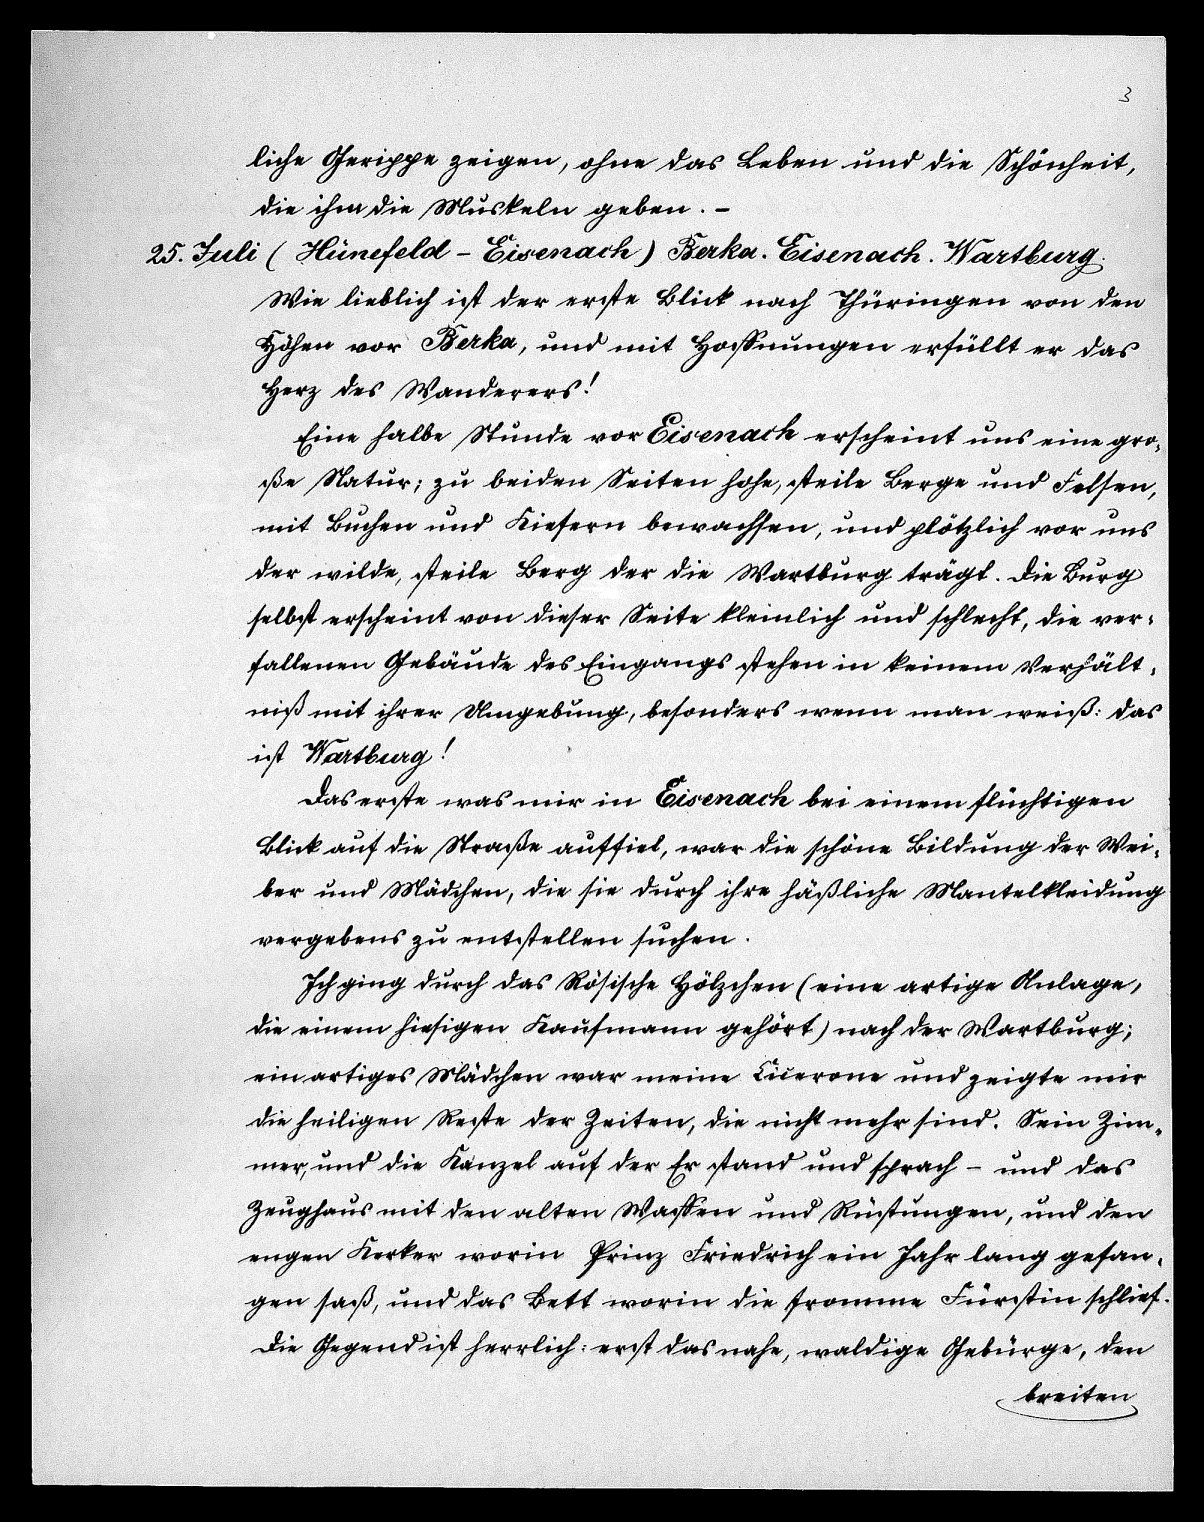 3
liche Gerippe zeigen, ohne das Leben und die Schönheit,
die ihm die Muskeln geben. –
25. Juli ( Hünefeld – Eisenach ) Berka. Eisenach. Wartburg.
Wie lieblich ist der erste Blick nach Thüringen von den
Höhen vor Berka, und mit Hoffnungen erfüllt er das
Herz des Wanderers!
Eine halbe Stunde vor Eisenach erscheint uns eine gro-
ße Natur; zu beiden Seiten hohe, steile Berge und Felsen,
mit Buchen und Kiefern bewachsen, und plötzlich vor uns
der wilde, steile Berg der die Wartburg trägt. Die Burg
selbst erscheint von dieser Seite kleinlich und schlecht, die ver-
fallenen Gebäude des Eingangs stehen in keinem Verhält-
niß mit ihrer Umgebung, besonders wenn man weiß: das
ist Wartburg!
Das erste was mir in Eisenach bei einem flüchtigen
Blick auf die Straße auffiel, war die schöne Bildung der Wei-
ber und Mädchen, die sie durch ihre häßliche Mantelkleidung
vergebens zu entstellen suchen.
Ich ging durch das Rösische Hölzchen (eine artige Anlage,
die einem hiesigen Kaufmann gehört) nach der Wartburg;
ein artiges Mädchen war meine Cicerone und zeigte mir
die heiligen Reste der Zeiten, die nicht mehr sind. Sein Zim-
mer, und die Kanzel auf der Er stand und sprach – und das
Zeughaus mit den alten Waffen und Rüstungen, und den
engen Kerker worin Prinz Friedrich ein Jahr lang gefan-
gen saß, und das Bett worin die fromme Fürstin schlief.
Die Gegend ist herrlich: erst das nahe, waldige Gebürge, den
breiten